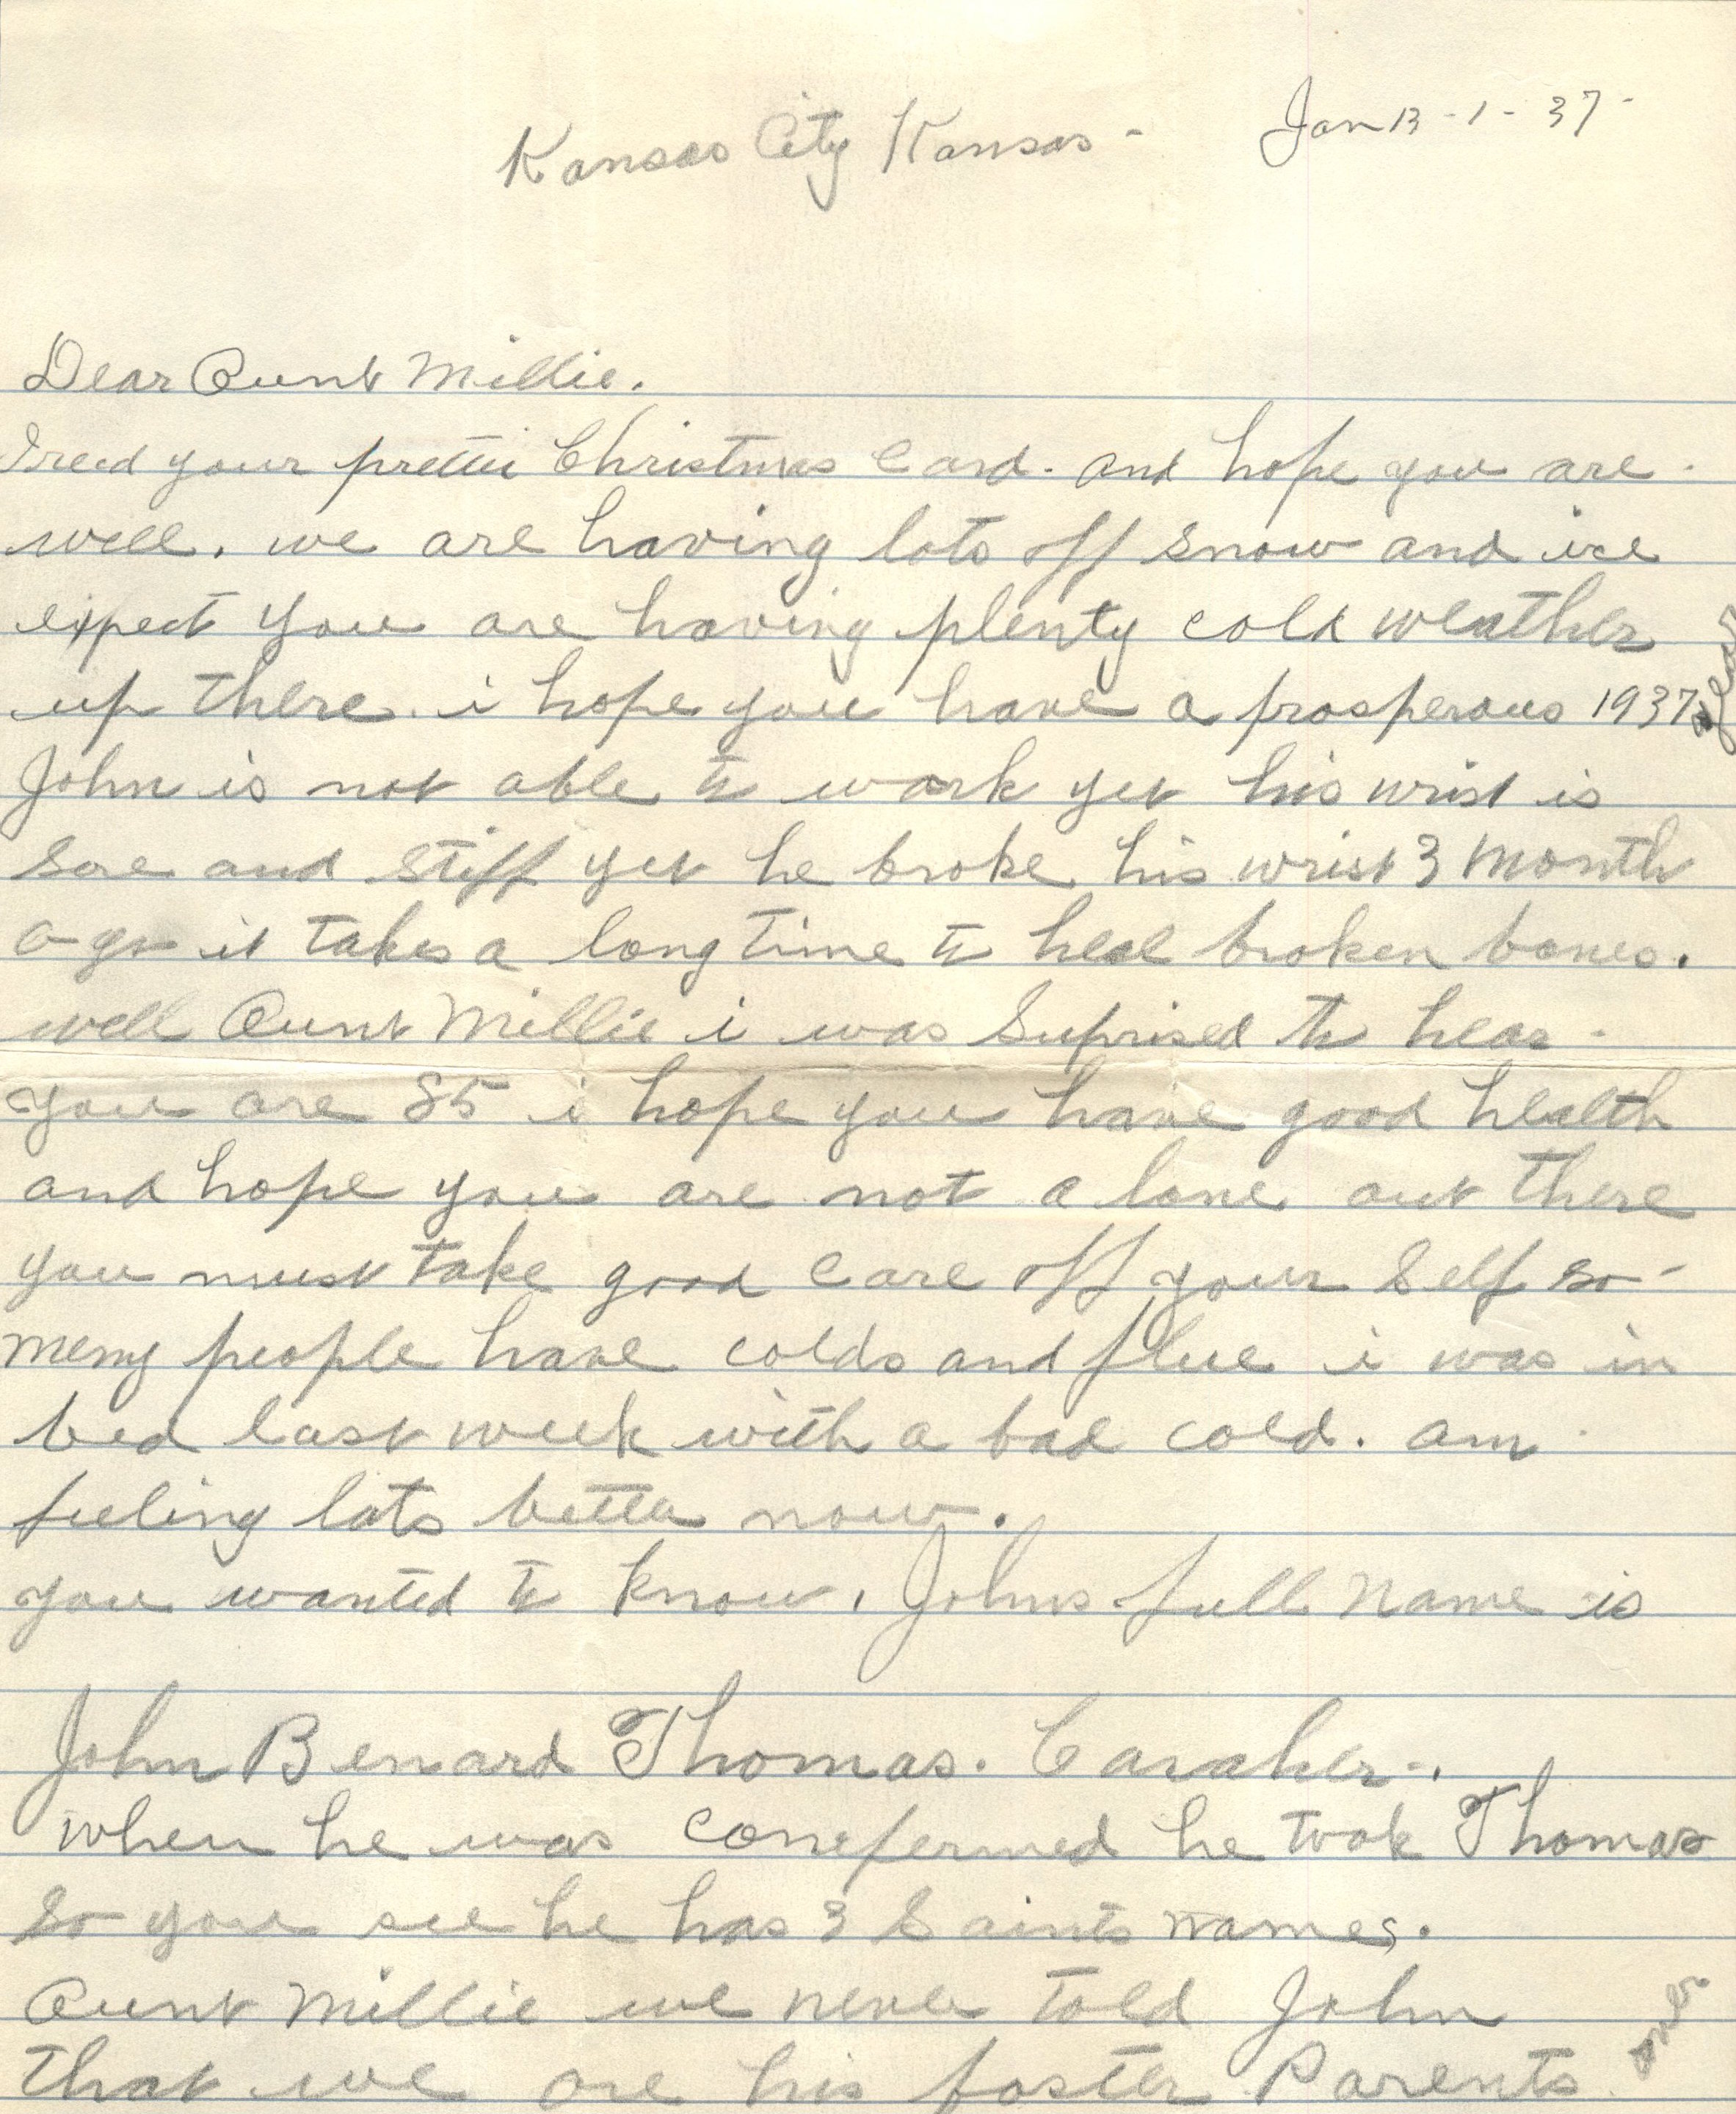 Kansas City Kansas - Jan 13 - 1 - 37 -
Dear Aunt Millie.
I recd your prettie Christmas Card. and hope you are.
well. we are having lots off snow and ice
expect you are having plenty cold weather
up there. i hope you have a prosperous 1937 year
John is not able to work yet his wrist is
sore and stiff yet he broke his wrist 3 month
ago it takes a long time to heal broken bones.
well Aunt Millie i was Suprised to hear -
you are 85 i hope you have good health
and hope you are not a lone out there
you must take good care off your Self so -
meny people have colds and flue i was in
bed last week with a bad cold. am
feeling lots better now.
you wanted to know. Johns full name is
John Benard Thomas. Caraher.
when he was conefermed he took Thomas
So you see he has 3 Saints names.
Aunt Millie we never told John
that we are his foster Parents